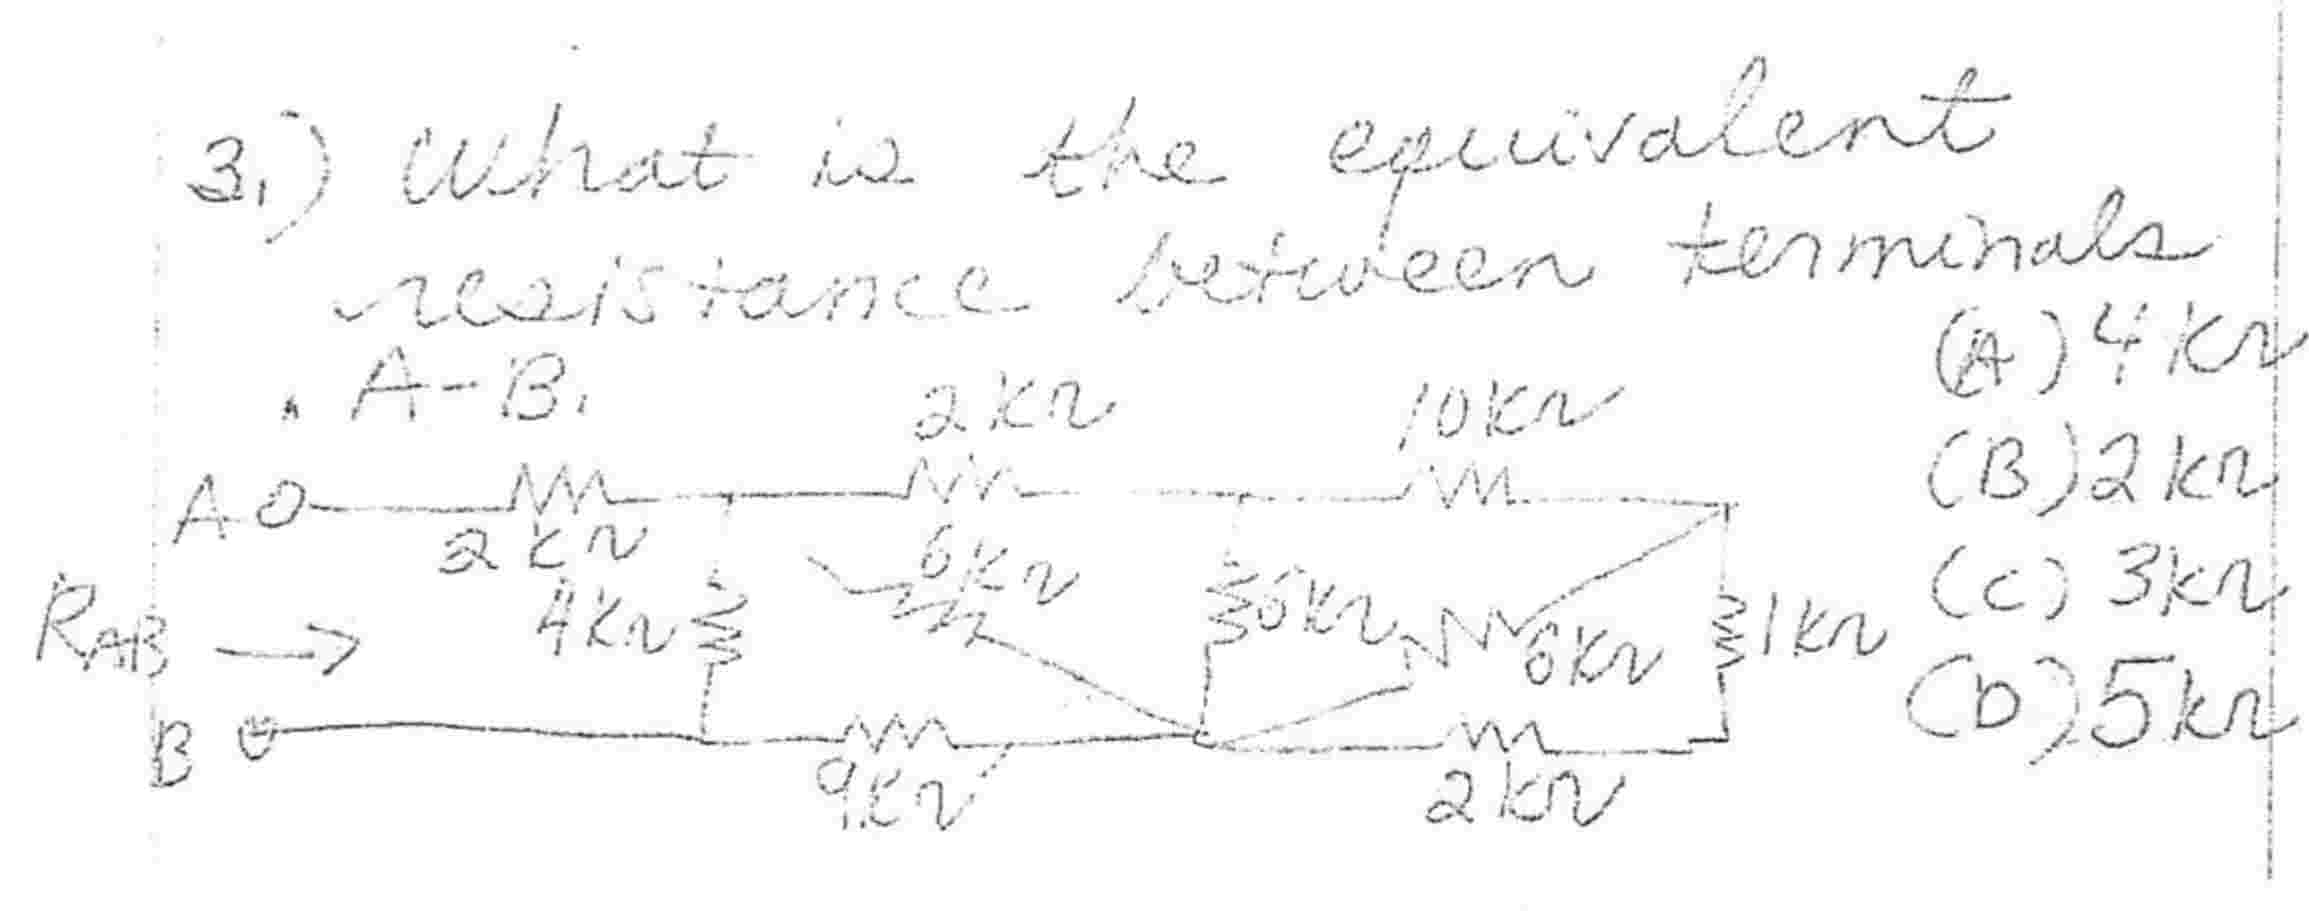 3.) What is the equivalent
resistance between terminals
A-B.
(A) 4kΩ
2kΩ
10kΩ
(B) 2kΩ
A
2kΩ
6kΩ
(C) 3kΩ
RAB →
4kΩ
6kΩ
6kΩ
1kΩ
(D) 5kΩ
B
9kΩ
2kΩ